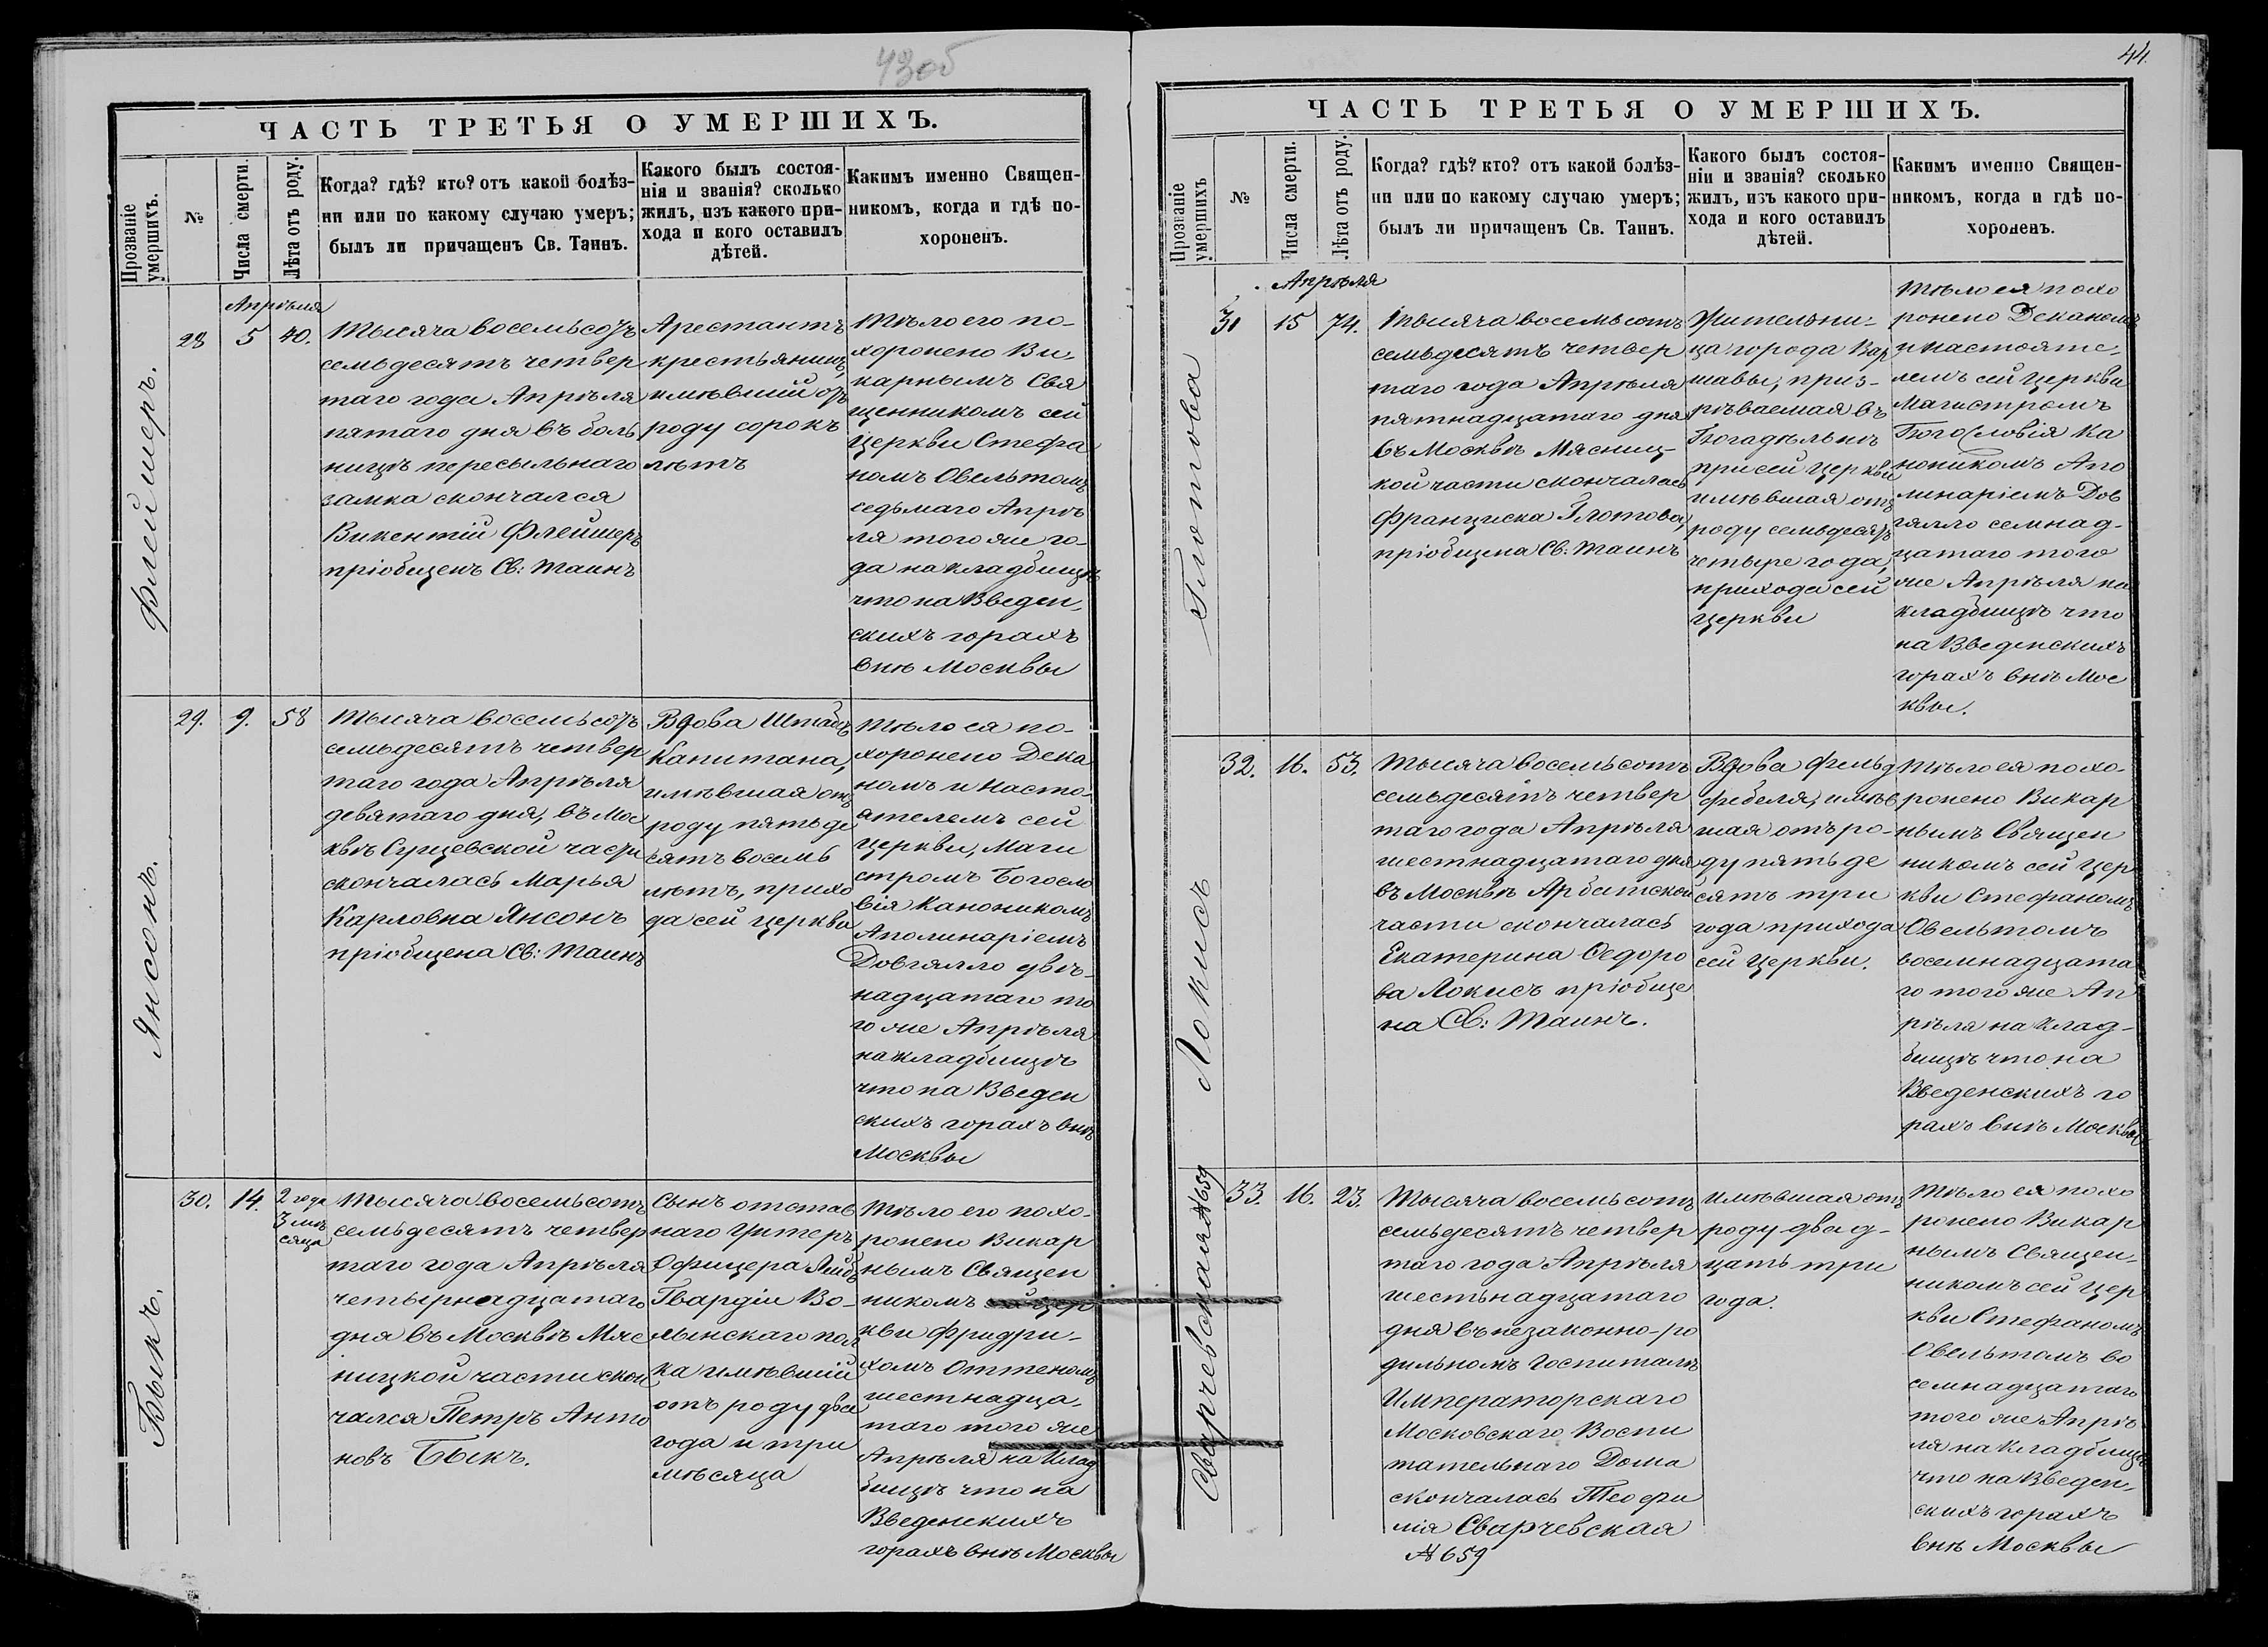 43об
ЧАСТЬ ТРЕТЬЯ О УМЕРШИХЪ.
Прозваніе умершихъ.
№
Числа смерти.
Лѣта отъ роду.
Когда? гдѣ? кто? отъ какой болѣз-
ни или по какому случаю умеръ;
былъ ли причащенъ Св. Таинъ.
Какого былъ состоя-
нія и званія? сколько
жилъ, изъ какого при-
хода и кого оставилъ
дѣтей.
Какимъ именно Священ-
никомъ, когда и гдѣ по-
хороненъ.
Флейшеръ.
Апрѣля
28
5
40.
Тысяча восемьсотъ
семьдесятъ четвер
таго года Апрѣля
пятаго дня въ боль
ницѣ пересыльнаго
замка скончался
Викентій Флейшеръ
пріобщенъ Св: Таинъ
Арестантъ
крестьянинъ,
имѣвшій отъ
роду сорокъ
лѣтъ
Тѣло его по-
хоронено Ви-
карнымъ Свя
щенникомъ сей
церкви Стефа
номъ Овельтомъ
седьмаго Апрѣ
ля того же го-
да на кладбищѣ
что на Введен-
скихъ горахъ
внѣ Москвы
Янсонъ.
29.
9.
58
Тысяча восемьсотъ
семьдесятъ четвер
таго года Апрѣля
девятаго дня, въ Мос
квѣ Сущевской части
скончалась Марья
Карловна Янсонъ
пріобщена Св: Таинъ
Вдова Штабсъ
Капитана,
имѣвшая отъ
роду пятьде
сятъ восемь
лѣтъ, прихо
да сей церкви
Тѣло ея по-
хоронено Дека
номъ и Насто-
ятелемъ сей
церкви, Маги
стромъ Богосло
вія Каноникомъ
Аполинаріемъ
Довгялло двѣ-
надцатаго то
го же Апрѣля
на кладбищѣ
что на Введен
скихъ горахъ внѣ
Москвы
Быкъ.
30.
14.
2 года
3 мѣ
сяца
Тысяча восемьсотъ
семьдесятъ четвер
таго года Апрѣля
четырнадцатаго
дня въ Москвѣ Мяс
ницкой части скон
чался Петръ Анто
новъ Быкъ.
Сынъ отстав
наго Унтеръ
Офицера Лейбъ
Гвардіи Во-
лынскаго пол
ка имѣвшій
отъ роду два
года и три
мѣсяца
Тѣло его похо-
ронено Викар
нымъ Священ
никомъ сей цер
кви Фридри-
хомъ Оттеномъ
шестнадца-
таго того же
Апрѣля на Клад
бищѣ что на
Введенскихъ
горахъ внѣ Москвы
44.
ЧАСТЬ ТРЕТЬЯ О УМЕРШИХЪ.
Прозваніе умершихъ
№
Числа смерти.
Лѣта отъ роду.
Когда? гдѣ? кто? отъ какой болѣз-
ни или по какому случаю умеръ;
былъ ли причащенъ Св. Таинъ.
Какого былъ состоя-
ніи и званія? сколько
жилъ, изъ какого при-
хода и кого оставилъ
дѣтей.
Какимъ именно Священ-
никомъ, когда и гдѣ по-
хороненъ.
Глотова
Апрѣля
31
15
74.
Тысяча восемьсотъ
семьдесятъ четвер
таго года Апрѣля
пятнадцатаго дня
въ Москвѣ Мясниц-
кой части скончалась
Франциска Глотова,
пріобщена Св: Таинъ
Жительни-
ца города Вар
шавы, приз-
рѣваемая въ
Богадѣльнѣ
при сей церкви
имѣвшая отъ
роду семьдесятъ
четыре года,
прихода сей
церкви
Тѣло ея похо
ронено Деканомъ
и Настояте-
лемъ сей церкви
Магистромъ
Богословія Ка
ноникомъ Апо
линаріемъ Дов
гялло семнад-
цатаго того
же Апрѣля на
кладбищѣ что
на Введенскихъ
горахъ внѣ Мос
квы.
Локисъ
32.
16.
53.
Тысяча восемьсотъ
семьдесятъ четвер
таго года Апрѣля
шестнадцатаго дня
въ Москвѣ Арбатской
части скончалась
Екатерина Ѳедоро
ва Локисъ пріобще
на Св: Таинъ.
Вдова Фельд
фебеля, имѣв
шая отъ ро-
ду пятьде
сятъ три
года прихода
сей Церкви.
Тѣло ея похо-
ронено Викар
нымъ Священ
никомъ сей Цер
кви Стефаномъ
Овельтомъ
восемнадцата
го того же Ап
рѣля на Клад-
бищѣ что на
Введенскихъ го
рахъ внѣ Москвы
Сварчевская №659
33.
16.
23.
Тысяча восемьсотъ
семьдесятъ четвер
таго года Апрѣля
шестьнадцатаго
дня въ незаконно-ро
дильномъ Госпиталѣ
Императорскаго
Московскаго Воспи
тательнаго Дома
скончалась Теофи
лія Сварчевская
№659
Имѣвшая отъ
роду двад-
цать три
года.
Тѣло ея похо
ронено Викар
нымъ Священ-
никомъ сей Цер
кви Стефаномъ
Овельтомъ во
семнадцатаго
того же Апрѣ
ля на Кладбищѣ
что на Введен-
скихъ горахъ
внѣ Москвы